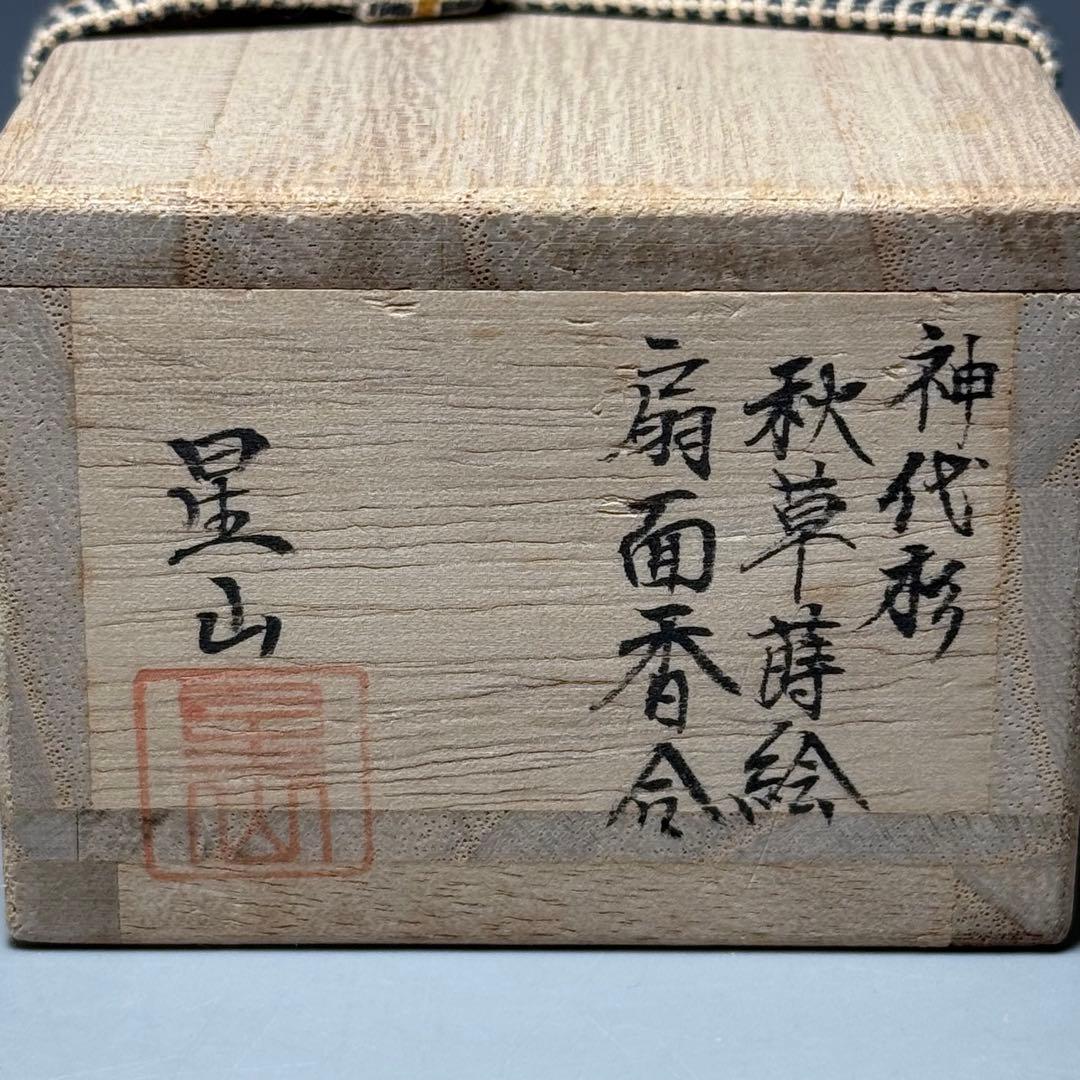 神代杉
秋草蒔絵
扇面香合
星山
星山